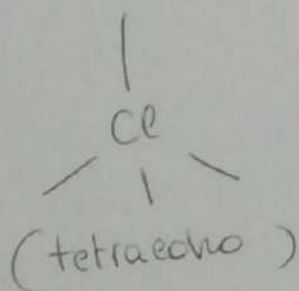 Cl
(tetraedro)